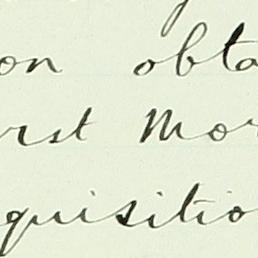 on obta
rst Mor
quisitio